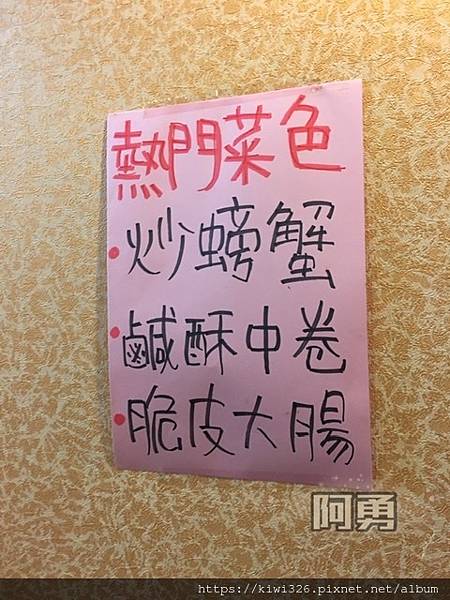 熱門菜色
炒螃蟹
鹹酥中卷
脆皮大腸
阿勇
https://kiwi326.pixnet.net/album